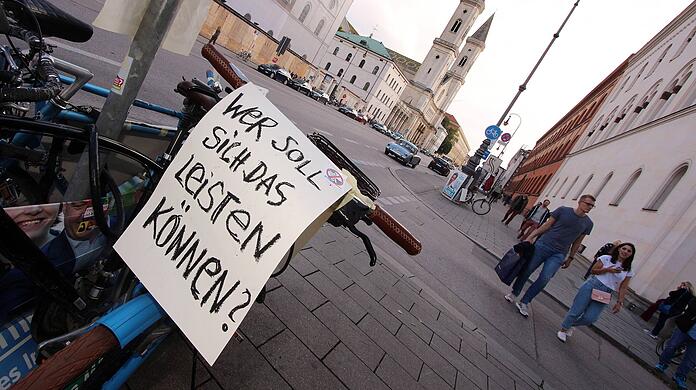 WER SOLL
SICH DAS
LEISTEN
KÖNNEN?